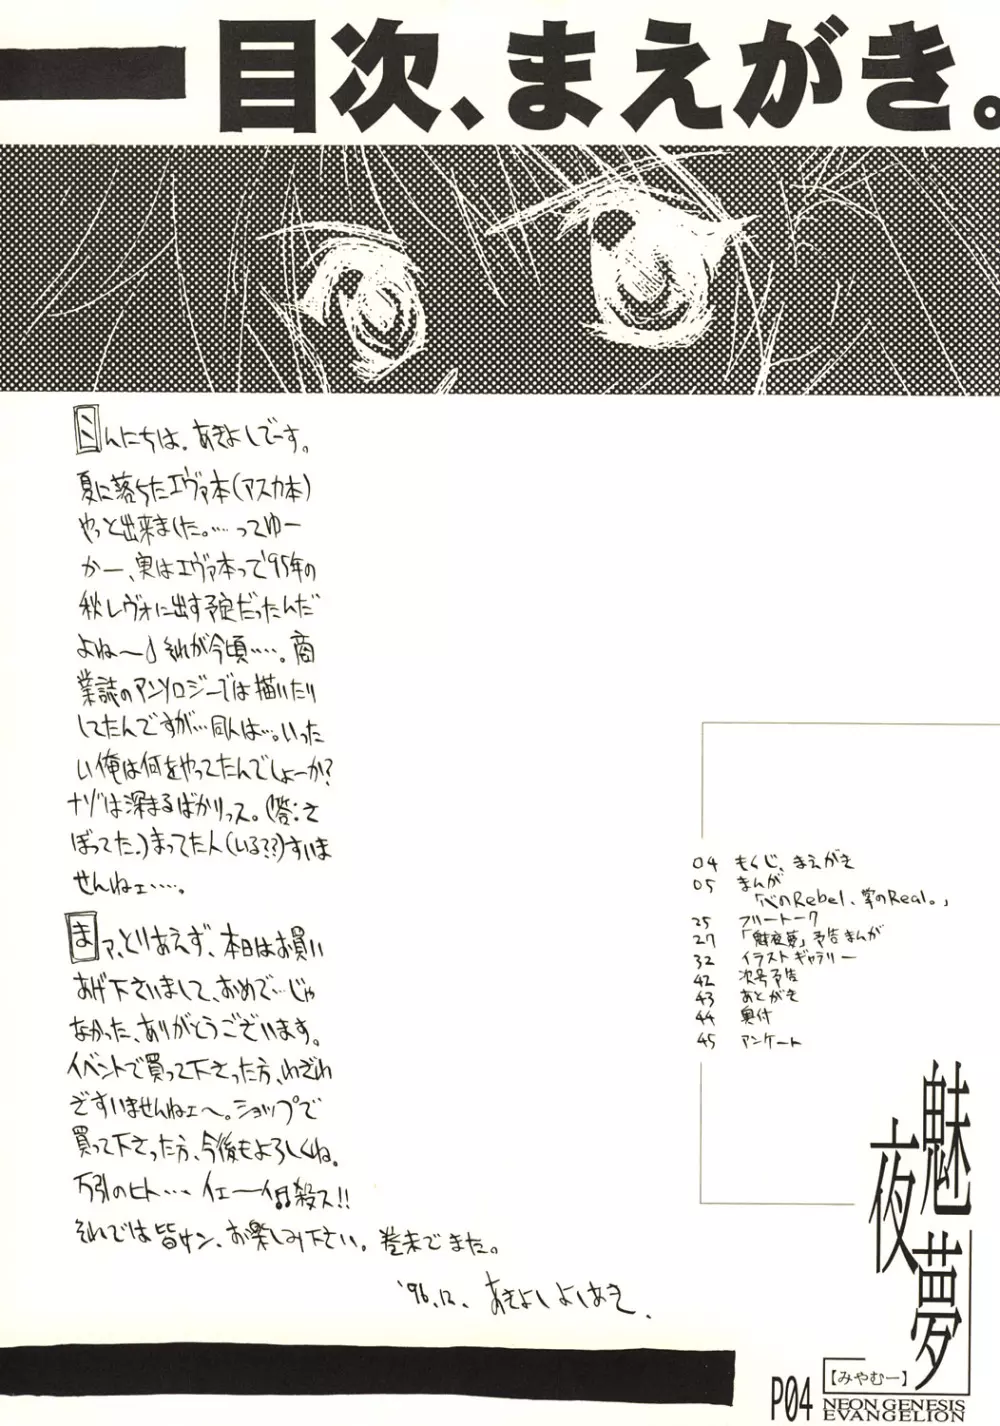 目次、まえがき。
こんにちは、あきよしでーす。
夏に落ちたエヴァ本(アスカ本)
やっと出来ました。…ってゆー
かー、実はエヴァ本って'95年の
秋レヴォに出す予定だったんだ
よね〜♪それが今頃…。商
業誌のアンソロジーでは描いたり
してたんですが…同人は…。いった
い俺は何をやってたんでしょーか?
ナゾは深まるばかりっス。(答:さ
ぼってた。)まってた人(いる??)すいま
せんねェ…。
まァ、とりあえず、本日はお買い
あげ下さいまして、おめで…じゃ
なかった、ありがとうございます。
イベントで買って下さった方、わざわ
ざすいませんねェ〜。ショップで
買って下さった方、今後もよろしくね。
万引のヒト…イェーイ♫殺ス!!
それでは皆サン、お楽しみ下さい。巻末でまた。
'96.12. あきよしよしあき.
04 もくじ、まえがき
05 まんが
「心のRebel、掌のReal。」
25 フリートーク
27 「魅夜夢」予告まんが
32 イラストギャラリー
42 次号予告
43 あとがき
44 奥付
45 アンケート
魅夜夢
【みやむー】
NEON GENESIS
EVANGELION
P04